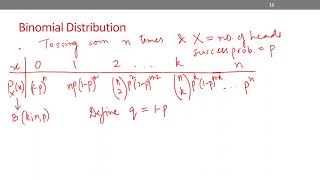 12
Binomial Distribution
• Tossing coin n times & X = no. of heads
success prob. = p
x 0 1 2 ... k n
P_X(x) (1-p)^n np(1-p)^{n-1} \binom{n}{2} p^2 (1-p)^{n-2} \binom{n}{k} p^k (1-p)^{n-k} ... p^n
↓
B(k;n,p) Define q = 1-p